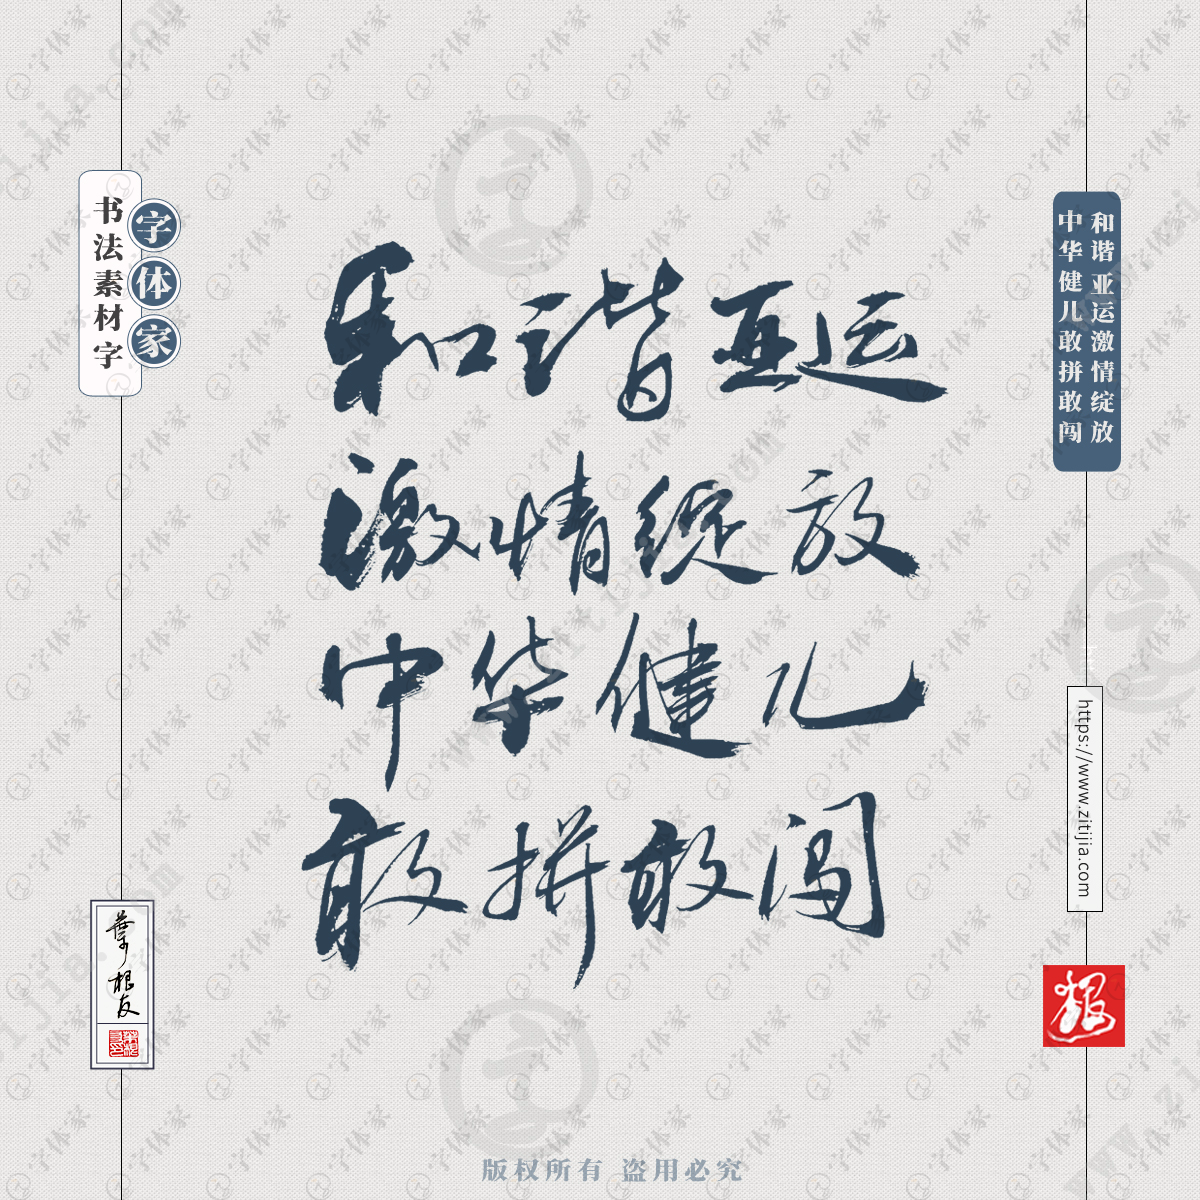 和谐亚运
激情绽放
中华健儿
敢拼敢闯
书法素材字
字体家
和谐亚运激情绽放
中华健儿敢拼敢闯
https://www.zitijia.com
叶根友
版权所有 盗用必究